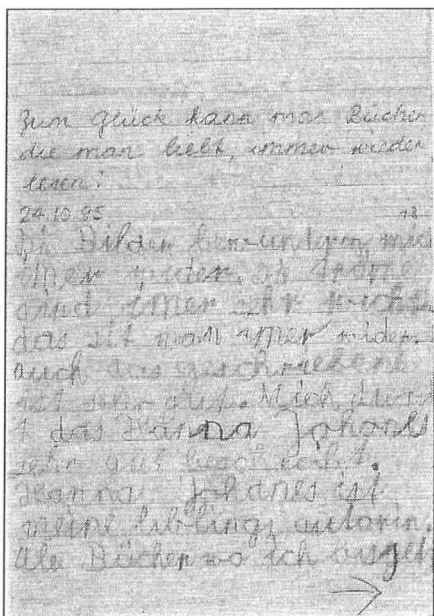 Zum glück kann man Bücher
die man liebt, immer wieder
lesen!
24.10.95 18
Di Bilder bewundern mich
imer wider,
sind imer ser
das sit man imer wider.
auch das geschriebene
ist sehr gut. Mich
t das Hanna Johans
sehr gut beschreibt.
Hanna Johanes ist
meine liblings autorin.
Ale Bücher wo ich ausgel